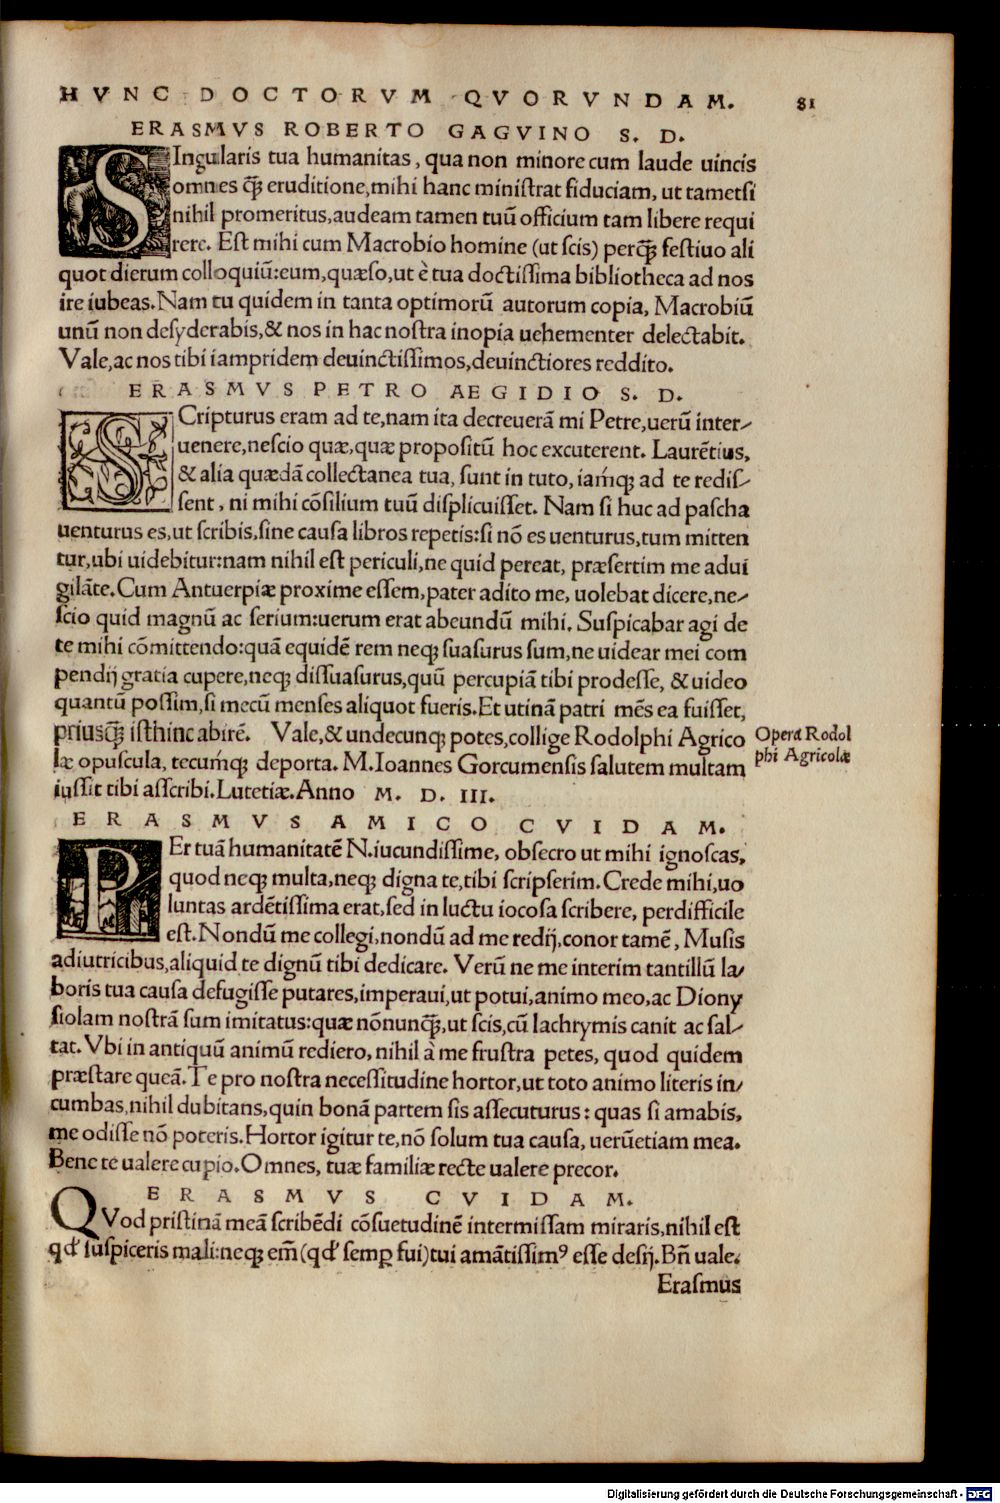 HVNC DOCTORVM QVORVNDAM. 81
ERASMVS ROBERTO GAGVINO S. D.
SIngularis tua humanitas, qua non minore cum laude uincis
omnes q̃ꝫ eruditione, mihi hanc ministrat fiduciam, ut tametsi
nihil promeritus, audeam tamen tuũ officium tam libere requi
rere. Est mihi cum Macrobio homine (ut scis) perq̃ꝫ festiuo ali
quot dierum colloquiũ: eum, quæso, ut è tua doctissima bibliotheca ad nos
ire iubeas. Nam tu quidem in tanta optimorũ autorum copia, Macrobiũ
unũ non desyderabis, & nos in hac nostra inopia uehementer delectabit.
Vale, ac nos tibi iampridem deuinctissimos, deuinctiores reddito.
ERASMVS PETRO AEGIDIO S. D.
SCripturus eram ad te, nam ita decreuerã mi Petre, uerũ inter-
uenere, nescio quæ, quæ propositũ hoc excuterent. Laurẽtius,
& alia quædã collectanea tua, sunt in tuto, iamq́ꝫ ad te redis-
sent, ni mihi cõsilium tuũ displicuisset. Nam si huc ad pascha
uenturus es, ut scribis, sine causa libros repetis: si nõ es uenturus, tum mitten
tur, ubi uidebitur: nam nihil est periculi, ne quid pereat, præsertim me adui
gilãte. Cum Antuerpiæ proxime essem, pater adito me, uolebat dicere, ne-
scio quid magnũ ac serium: uerum erat abeundũ mihi. Suspicabar agi de
te mihi cõmittendo: quã equidẽ rem neqꝫ suasurus sum, ne uidear mei com
pendij gratia cupere, neqꝫ dissuasurus, quũ percupiã tibi prodesse, & uideo
quantũ possim, si mecũ menses aliquot fueris. Et utinã patri mẽs ea fuisset,
priusq̃ꝫ isthinc abirẽ. Vale, & undecunqꝫ potes, collige Rodolphi Agrico
læ opuscula, tecumq́ꝫ deporta. M. Ioannes Gorcumensis salutem multam
iussit tibi asscribi. Lutetiæ. Anno M. D. III.
Opera Rodol
phi Agricolæ
ERASMVS AMICO CVIDAM.
PEr tuã humanitatẽ N. iucundissime, obsecro ut mihi ignoscas,
quod neqꝫ multa, neqꝫ digna te, tibi scripserim. Crede mihi, uo
luntas ardẽtissima erat, sed in luctu iocosa scribere, perdifficile
est. Nondũ me collegi, nondũ ad me redij, conor tamẽ, Musis
adiutricibus, aliquid te dignũ tibi dedicare. Verũ ne me interim tantillũ la-
boris tua causa defugisse putares, imperaui, ut potui, animo meo, ac Diony
siolam nostrã sum imitatus: quæ nõnunq̃ꝫ, ut scis, cũ lachrymis canit ac sal-
tat. Vbi in antiquũ animũ rediero, nihil à me frustra petes, quod quidem
præstare queã. Te pro nostra necessitudine hortor, ut toto animo literis in-
cumbas, nihil dubitans, quin bonã partem sis assecuturus: quas si amabis,
me odisse nõ poteris. Hortor igitur te, nõ solum tua causa, uerũetiam mea.
Bene te ualere cupio. Omnes, tuæ familiæ recte ualere precor.
ERASMVS CVIDAM.
QVod pristinã meã scribẽdi cõsuetudinẽ intermissam miraris, nihil est
qđ suspiceris mali: neqꝫ em̃ (qđ semꝑ fui) tui amãtissimꝰ esse desij. Bñ uale.
Erasmus
Digitalisierung gefördert durch die Deutsche Forschungsgemeinschaft - DFG